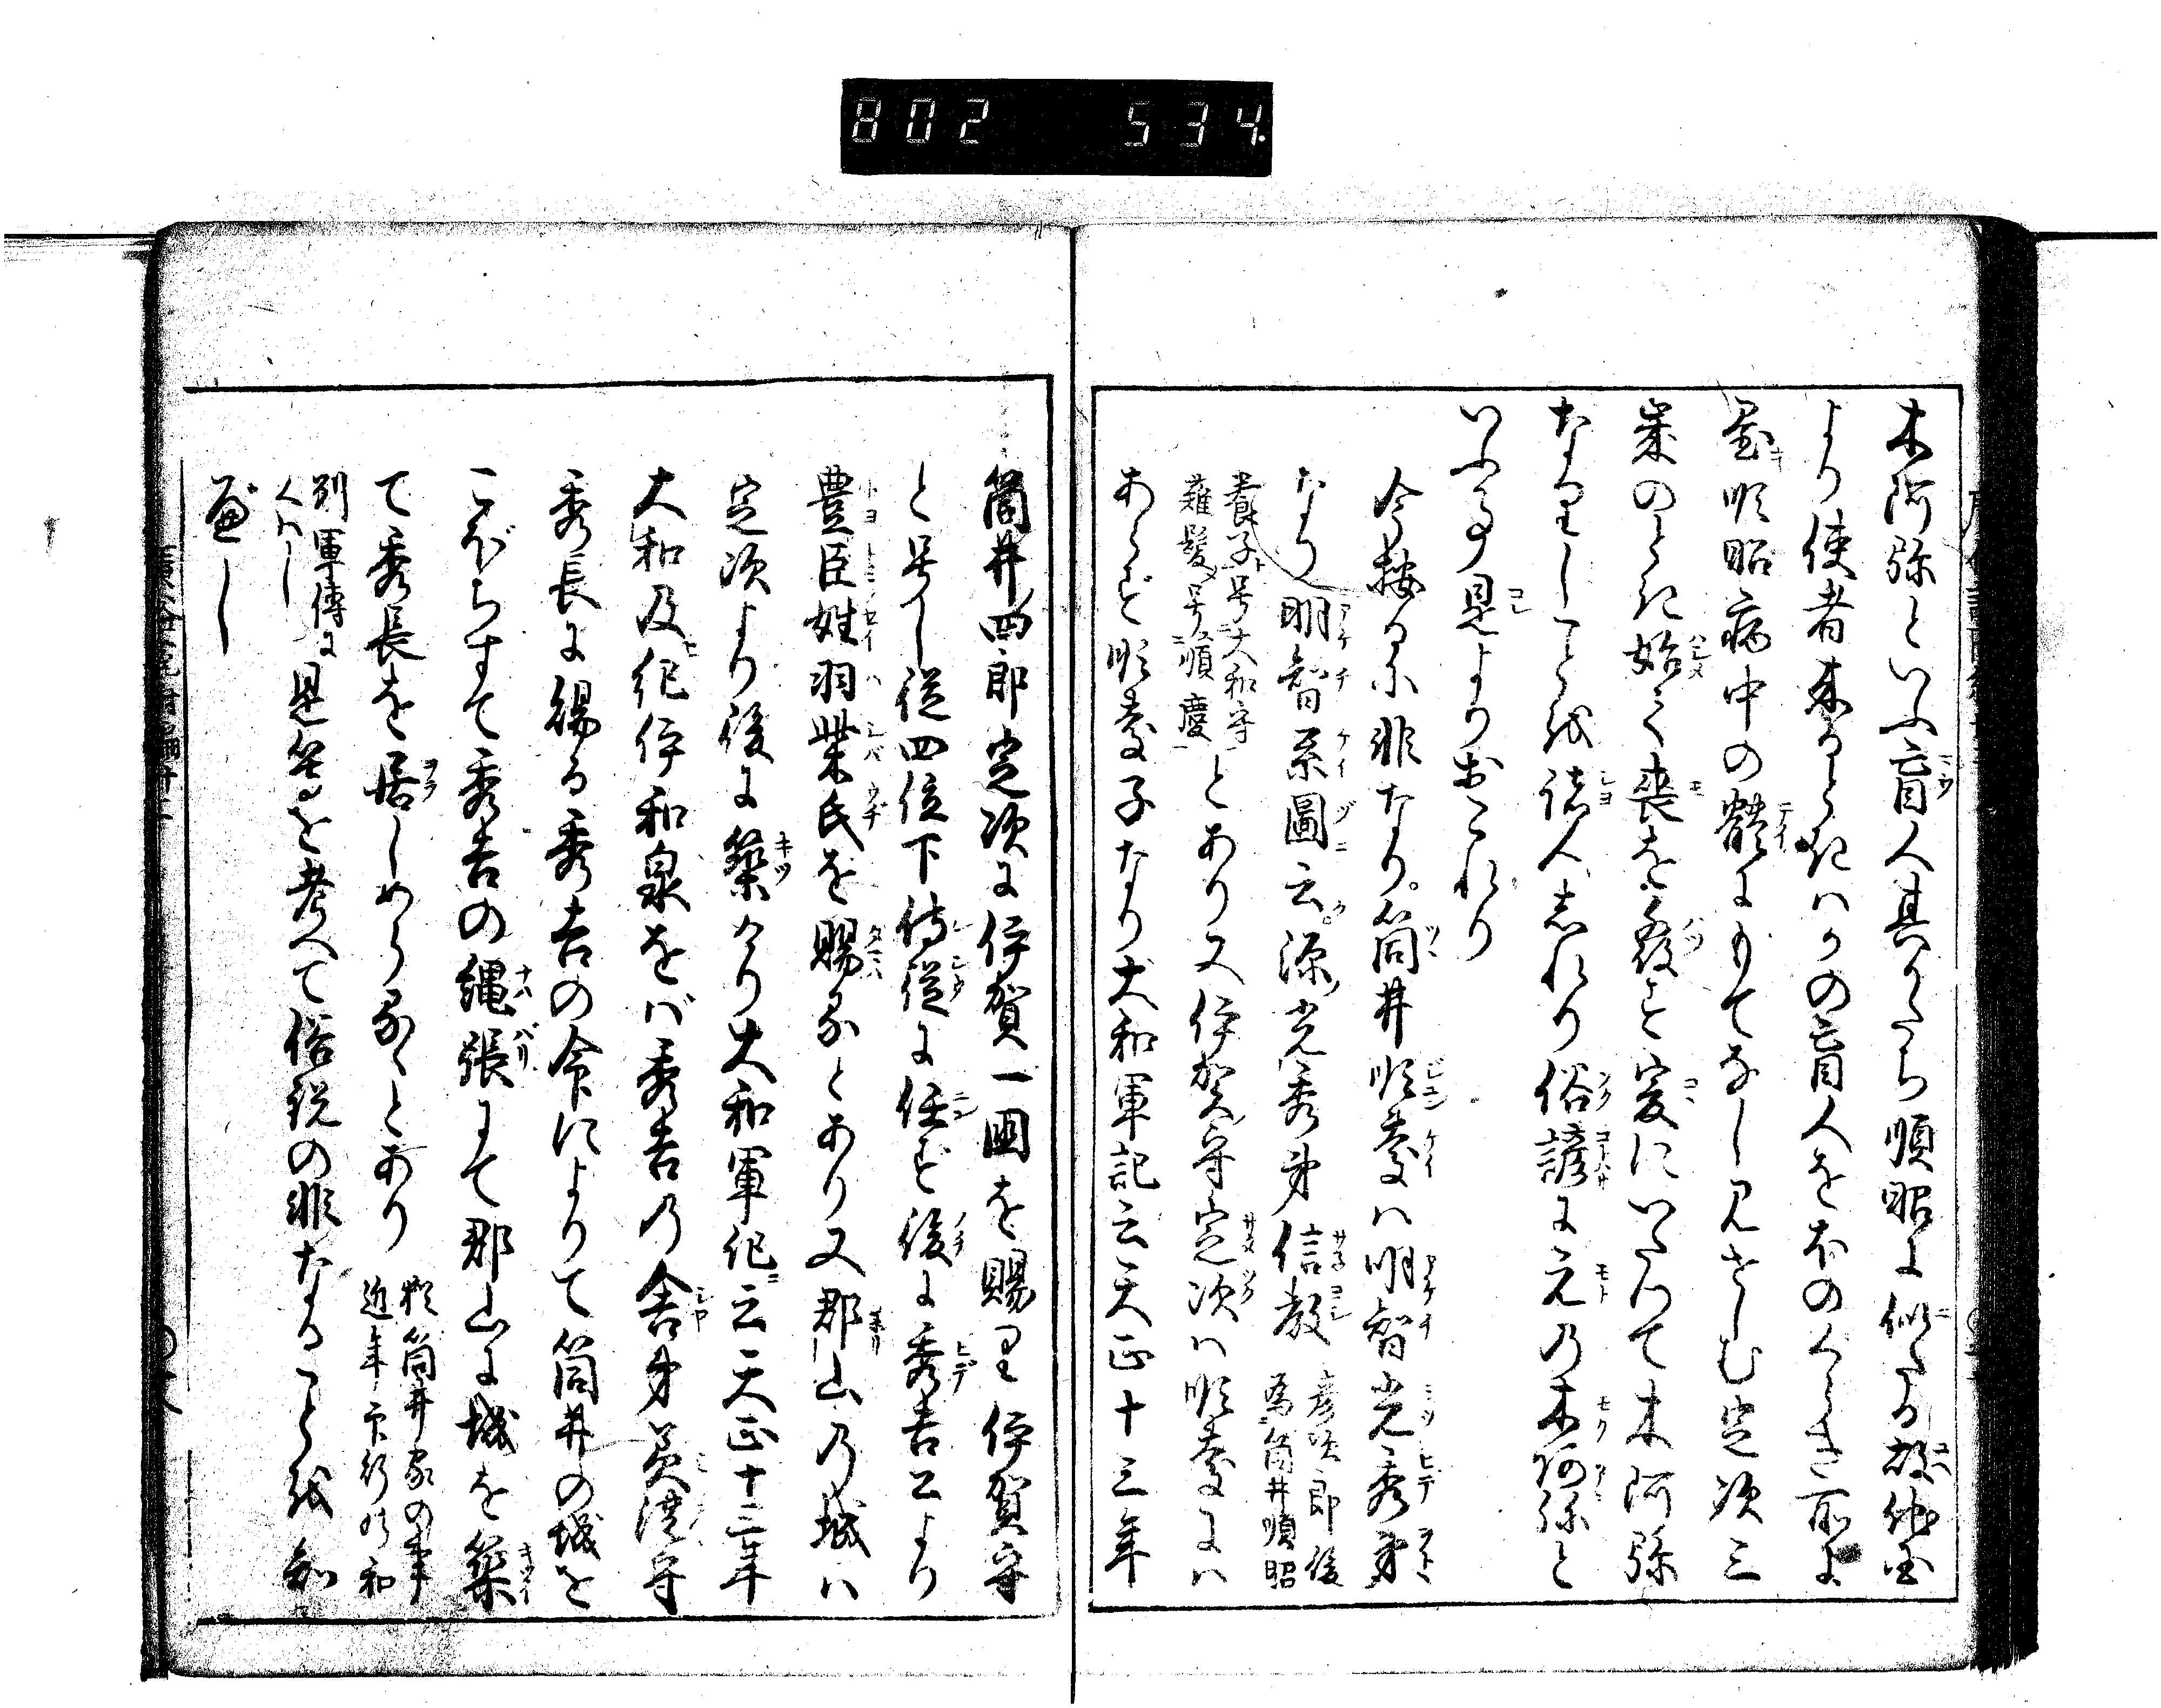 802 534.
木阿弥といふ盲人其かたち順昭に似たる故他国
より使者来るときハかの盲人をほのくらき所に
置順昭病中の體にもてなし見せしむ定次三
歳のとき始て喪を発す爰にいたつて木阿弥
なりしことを諸人しれり俗諺に元の木阿弥と
いふ事是よりおこれり
今按るに非なり。筒井順慶ハ明智光秀弟
なり明智系圖云。源光秀弟信教彦次郎後為筒井順昭
養子号大和守薙髪号順慶とあり又伊賀守定次ハ順慶にハ
あらず順慶子なり大和軍記云天正十三年
筒井四郎定次に伊賀一国を賜り伊賀守
と号し従四位下侍従に任ず後に秀吉公より
豊臣姓羽柴氏を賜ふとあり又郡山の城ハ
定次より後に築けり大和軍記云天正十三年
大和及紀伊和泉をバ秀吉の舎弟美濃守
秀長に賜る秀吉の命によりて筒井の城を
こぼちすて秀吉の縄張にて郡山に城を築
て秀長を居しめらるゝとあり 拠筒井家の事近年印行の和
別軍傳にくハし是等を考へて俗説の非なることを知
べし